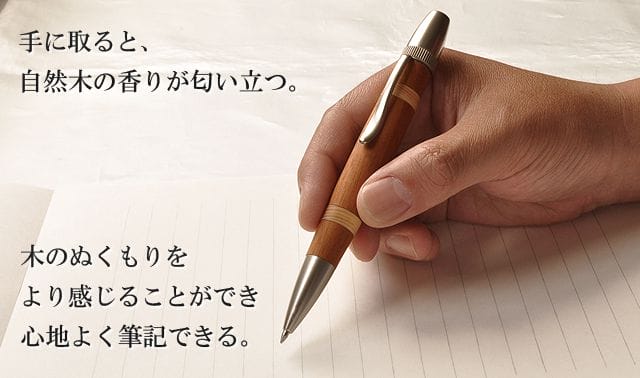 手に取ると、
自然木の香りが匂い立つ。
木のぬくもりを
より感じることができ
心地よく筆記できる。